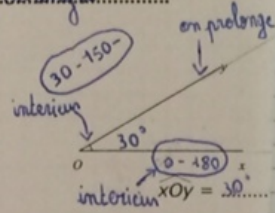 on prolonge
30 - 150 -
interieur
30°
O
0 - 180
x
interieur
xOy = 30°